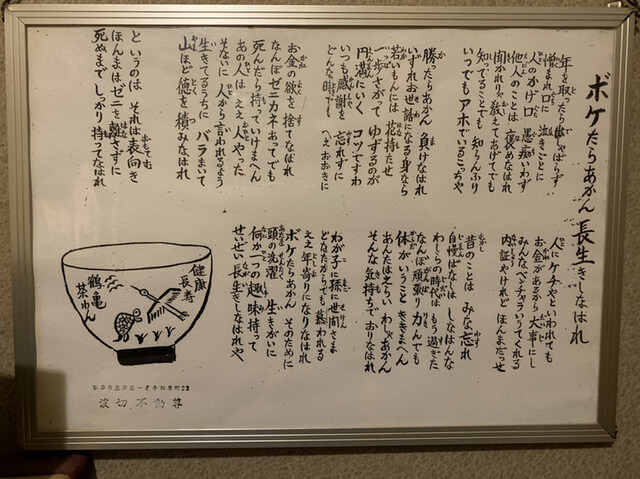 ボケたらあかん 長生きしなはれ
年を取ったら出しゃばらず
憎まれ口に 泣きごとに
人のかげ口 愚痴いわず
他人のことは 褒めなはれ
聞かれりゃ教えてあげてでも
知ってることでも 知らんふり
いつでもアホでいるこっちゃ
勝ったらあかん 負けなはれ
いずれお世話になる身なら
若いもんには 花持たせ
一歩さがって ゆずるのが
円満にいく コツですわ
いつも感謝を 忘れずに
どんな時でも へえおおきに
お金の欲を 捨てなはれ
なんぼゼニカネあってでも
死んだら持って いけまへん
あの人は ええ人やった
そないに 人から 言われるよう
生きてるうちに バラまいて
山ほど徳を 積みなはれ
というのは それは表向き
ほんまはゼニを 離さずに
死ぬまで しっかり 持ってなはれ
人にケチやと いわれても
お金があるから 大事にし
みんなベンチャラいうてくれる
内証やけれど ほんまだっせ
昔のことは みな忘れ
自慢ばなしは しなはんな
わしらの時代は もう過ぎた
なんぼ頑張り 力んでも
体がいうこと ききまへん
あんたはえらい わしゃあかん
そんな気持ちで おりなはれ
わが子に孫に 世間さま
どなたからでも 慕われる
ええ年寄りに なりなはれ
ボケたらあかん そのために
頭の洗濯 生きがいに
何か一つの 趣味持って
せいぜい長生き しなはれや
健康
長寿
鶴亀
茶わん
波切不動尊